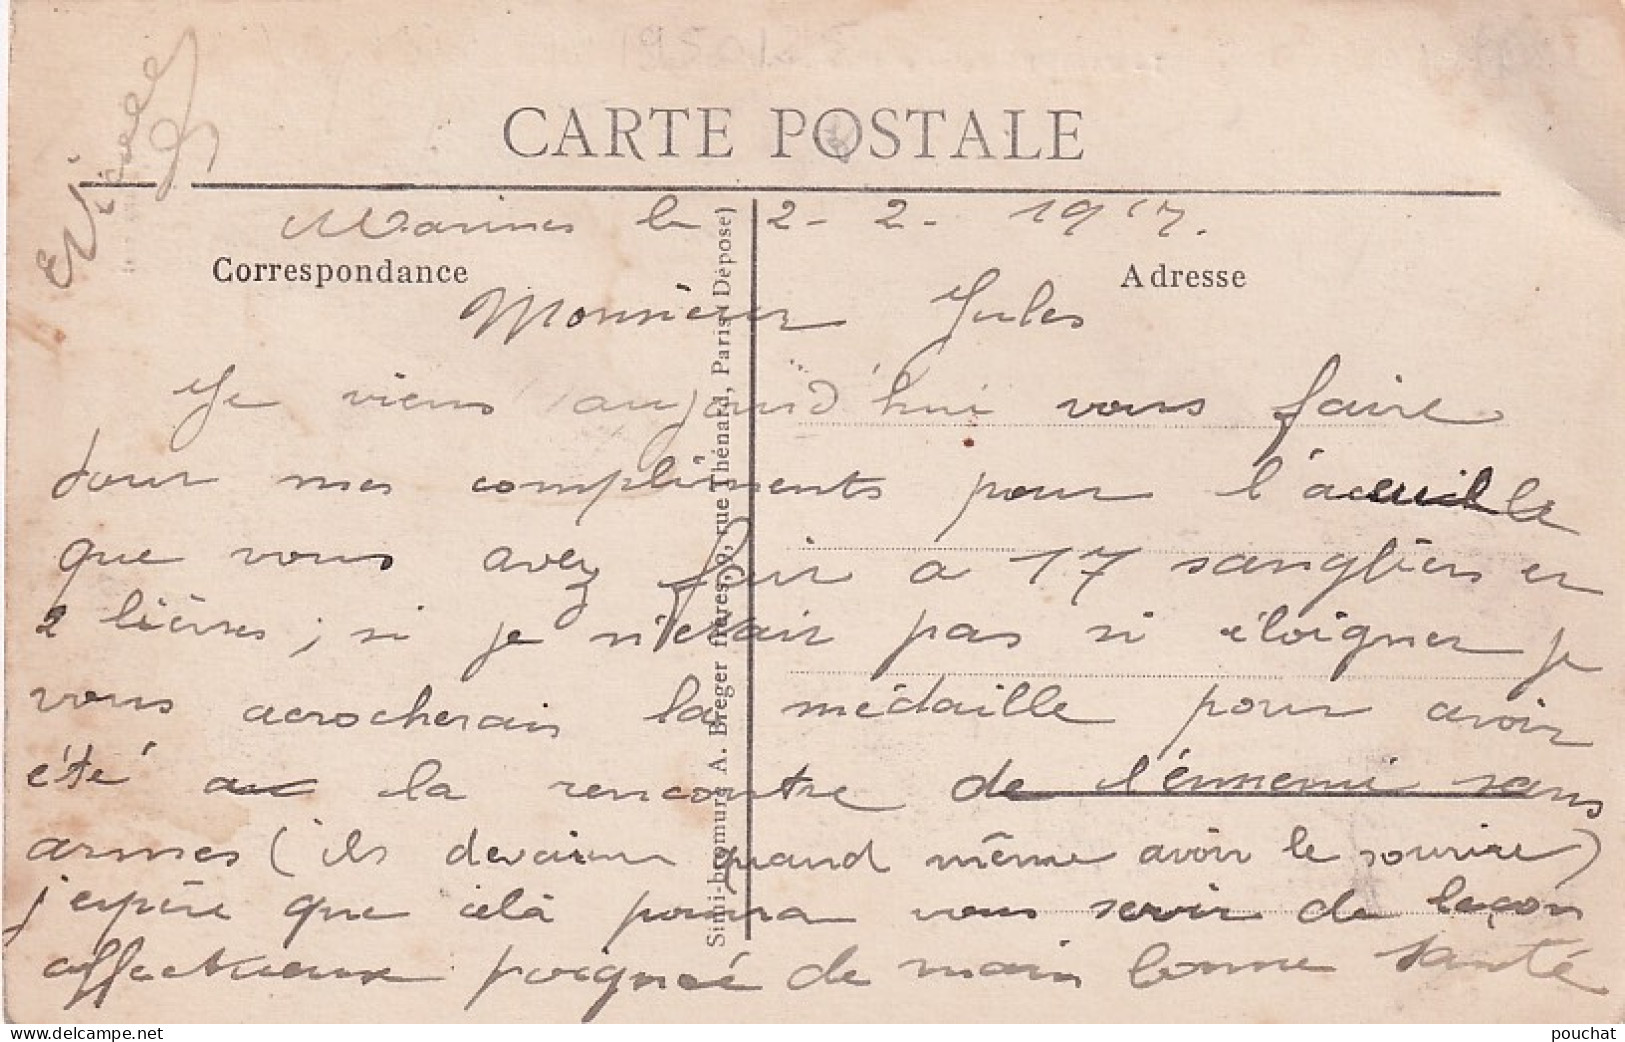 CARTE POSTALE
Marines le 2-2-1917.
Correspondance
Adresse
Monsieur Jules
Je viens aujourd'hui vous faire
tous mes compliments pour l'acueille
que vous avez fait a 17 sangliers et
2 lièvres ; si je n'étais pas si éloigner je
vous acrocherais la médaille pour avoir
été a la rencontre de l'énnemi sans
armes (ils devaient quand même avoir le sourire)
j'espère que celà pourra vous servir de leçon
affectueuse poignée de main bonne santé
Simi-bromure A. Breger frères, 9, rue Thénard, Paris (Déposé)
www.delcampe.net
pouchat